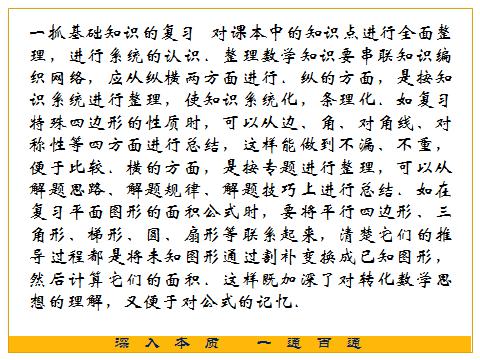 一抓基础知识的复习  对课本中的知识点进行全面整
理，进行系统的认识．整理数学知识要串联知识编
织网络，应从纵横两方面进行．纵的方面，是按知
识系统进行整理，使知识系统化，条理化．如复习
特殊四边形的性质时，可以从边、角、对角线、对
称性等四方面进行总结，这样能做到不漏、不重，
便于比较．横的方面，是按专题进行整理，可以从
解题思路、解题规律、解题技巧上进行总结．如在
复习平面图形的面积公式时，要将平行四边形、三
角形、梯形、圆、扇形等联系起来，清楚它们的推
导过程都是将未知图形通过割补变换成已知图形，
然后计算它们的面积．这样既加深了对转化数学思
想的理解，又便于对公式的记忆．
深入本质  一通百通